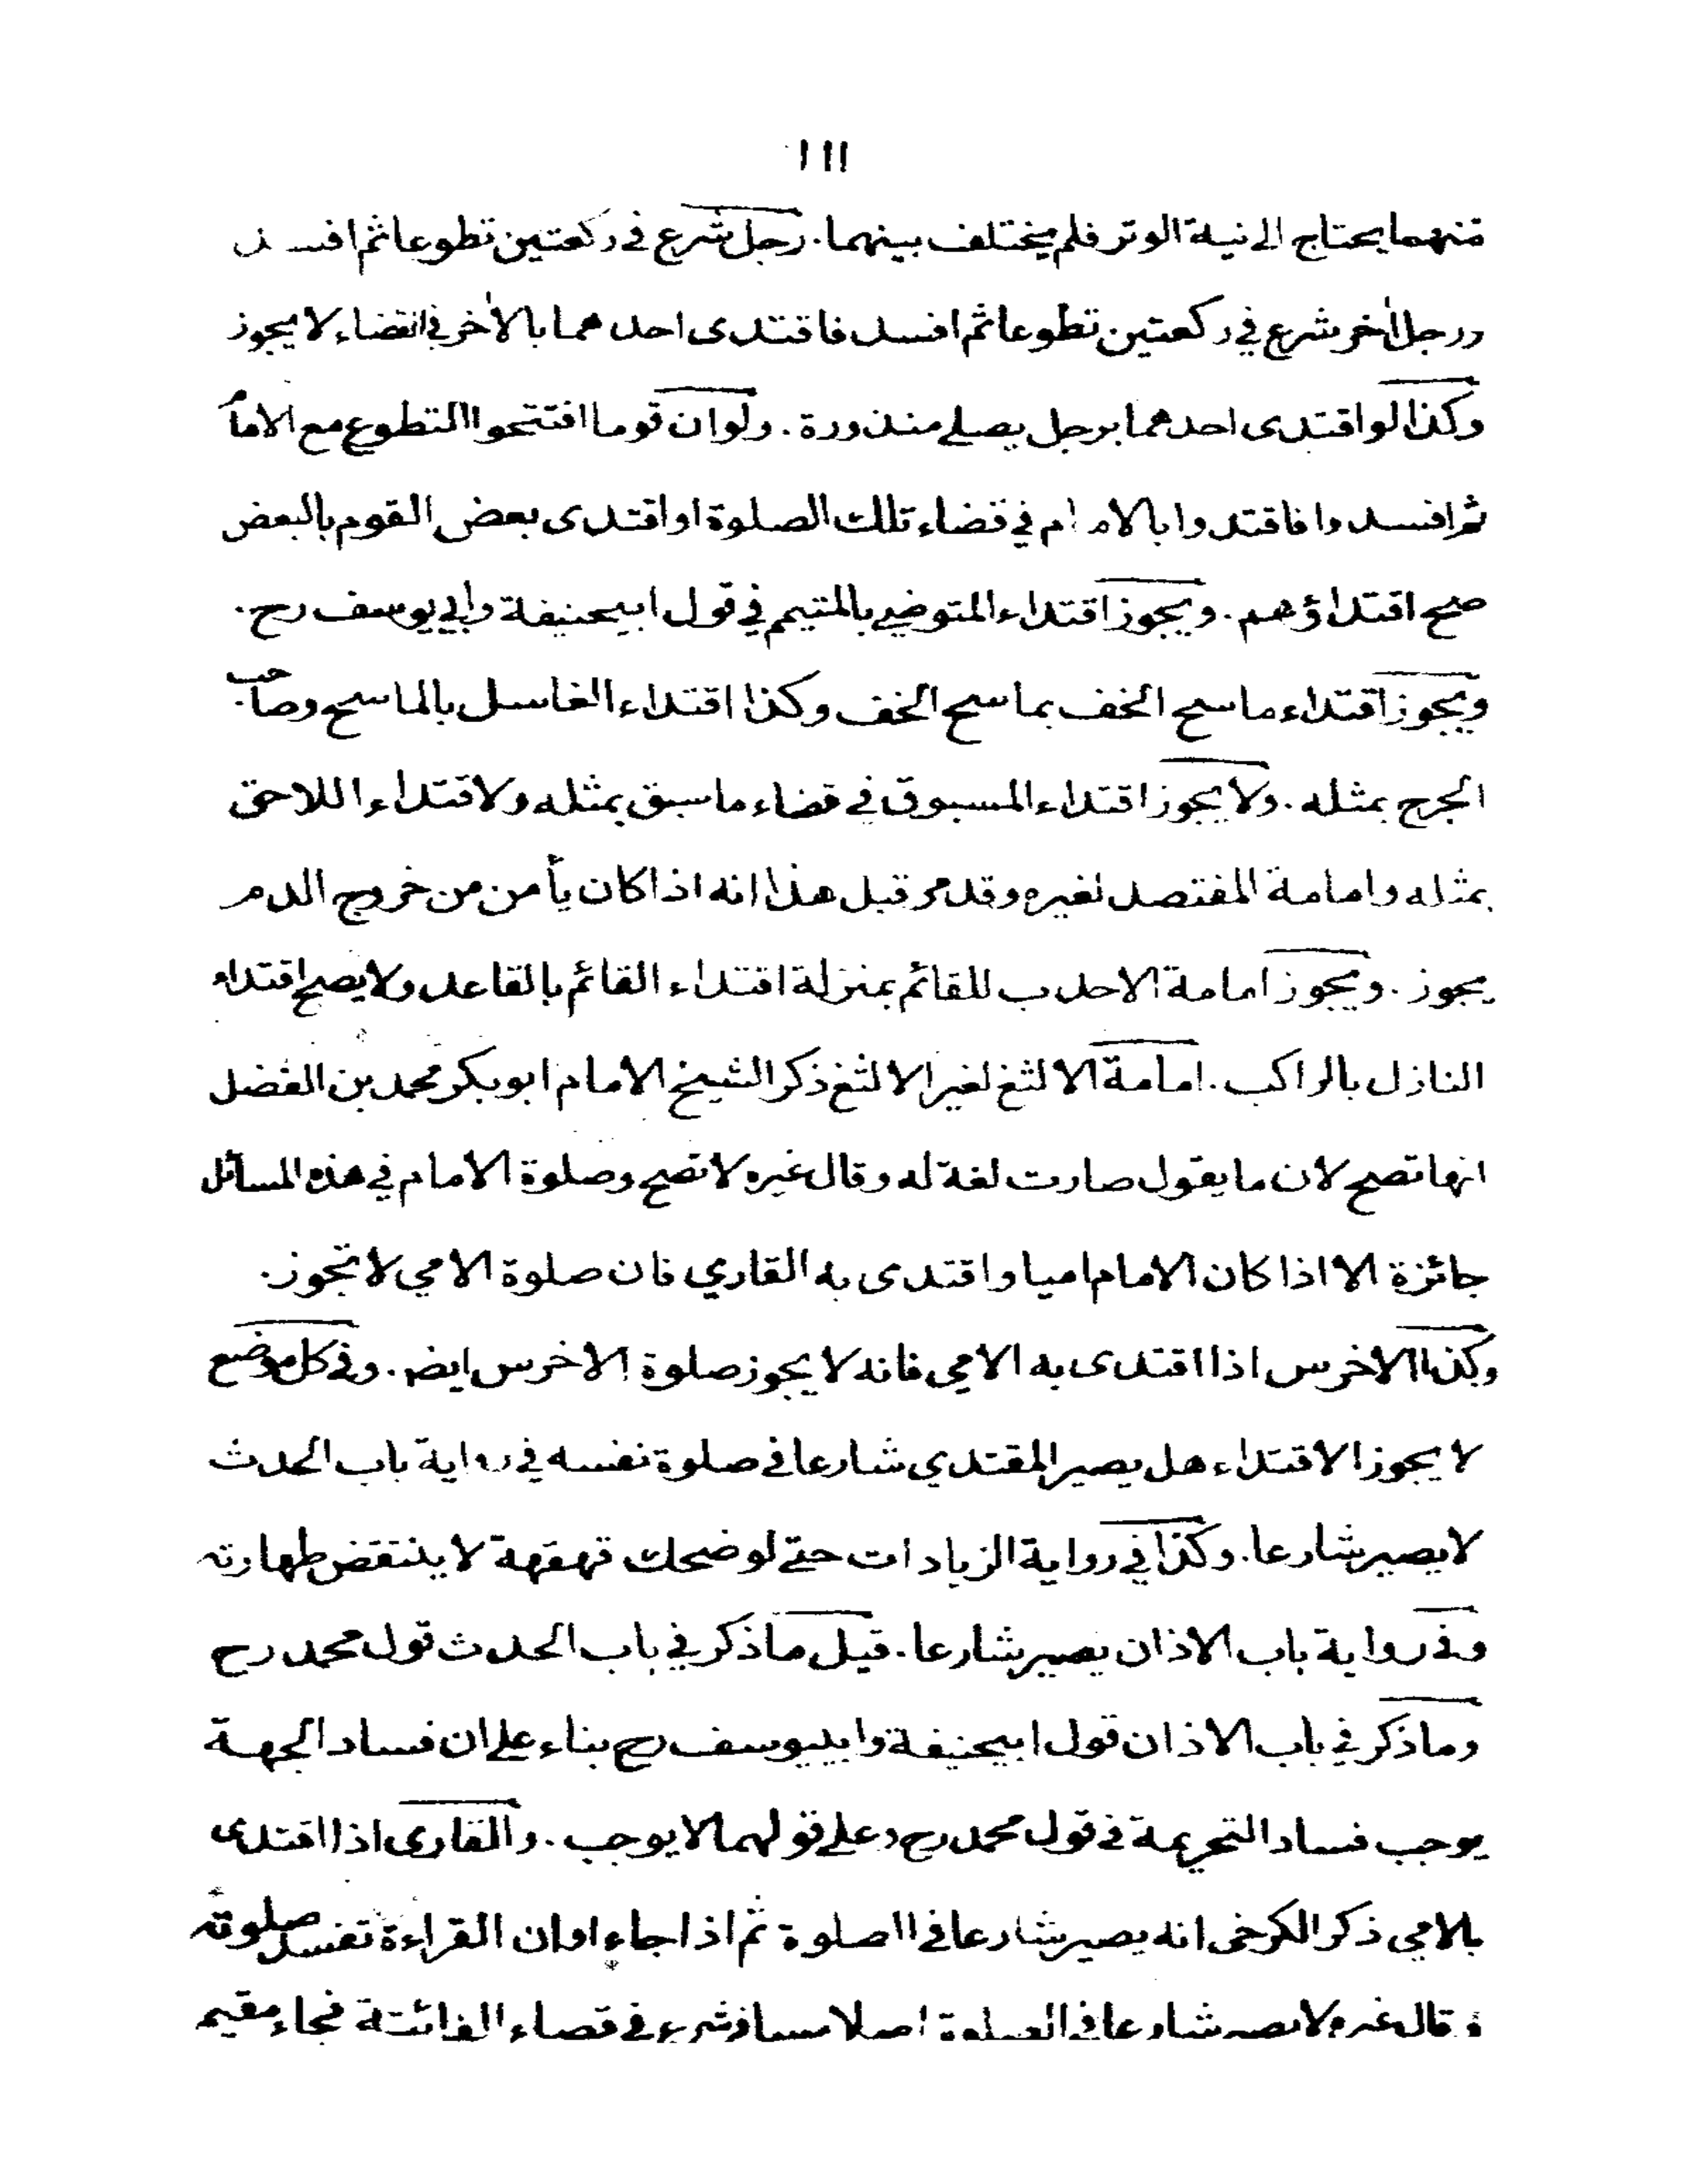 ١١١
منهما يحتاج الى نية الوتر فلم يختلف بينهما. رجل شرع في ركعتين تطوعا ثم افسد
ورجل اٰخر شرع في ركعتين تطوعا ثم افسد فاقتدى احدهما بالاٰخر في القضاء لا يجوز
وكذا لو اقتدى احدهما برجل يصلي منذورة. ولو ان قوما افتتحوا التطوع مع الامام
ثم افسدوا فاقتدوا بالامام في قضاء تلك الصلوة او اقتدى بعض القوم بالبعض
صح اقتداؤهم. ويجوز اقتداء المتوضي بالمتيمم في قول ابيحنيفة وابي يوسف رح.
ويجوز اقتداء ماسح الخف بماسح الخف وكذا اقتداء الغاسل بالماسح وصاحب
الجرح بمثله. ولا يجوز اقتداء المسبوق في قضاء ما سبق بمثله ولا قتداء اللاحق
بمثله وامامة المفتصد لغيره وقد مر قبل هذا انه اذا كان يأمن من خروج الدم
يجوز. ويجوز امامة الاحدب للقائم بمنزلة اقتداء القائم بالقاعد ولا يصح اقتداء
النازل بالراكب. امامة الالثغ لغير الالثغ ذكر الشيخ الامام ابو بكر محمد بن الفضل
انها تصح لان ما يقول صارت لغة له وقال غيره لا تصح وصلوة الامام في هذه المسائل
جائزة الا اذا كان الامام اميا واقتدى به القاري فان صلوة الامي لا تجوز.
وكذا الاخرس اذا اقتدى به الامي فانه لا يجوز صلوة الاخرس ايضا. وفي كل موضع
لا يجوز الاقتداء هل يصير المقتدي شارعا في صلوة نفسه في رواية باب الحدث
لا يصير شارعا. وكذا في رواية الزيادات حتى لو ضحك قهقهة لا ينتقض طهارته
وفي رواية باب الاذان يصير شارعا. قيل ما ذكر في باب الحدث قول محمد رح
وما ذكر في باب الاذان قول ابيحنيفة وابييوسف رح بناء على ان فساد الجهة
يوجب فساد التحريمة في قول محمد رح وعلى قولهما لا يوجب. والقارى اذا اقتدى
بالامي ذكر الكرخى انه يصير شارعا في الصلوة ثم اذا جاء اوان القراءة تفسد صلوته
وقال غيره لا يصير شارعا في الصلوة اصلا مسافر شرع في قضاء الفائتة فجاء مقيم